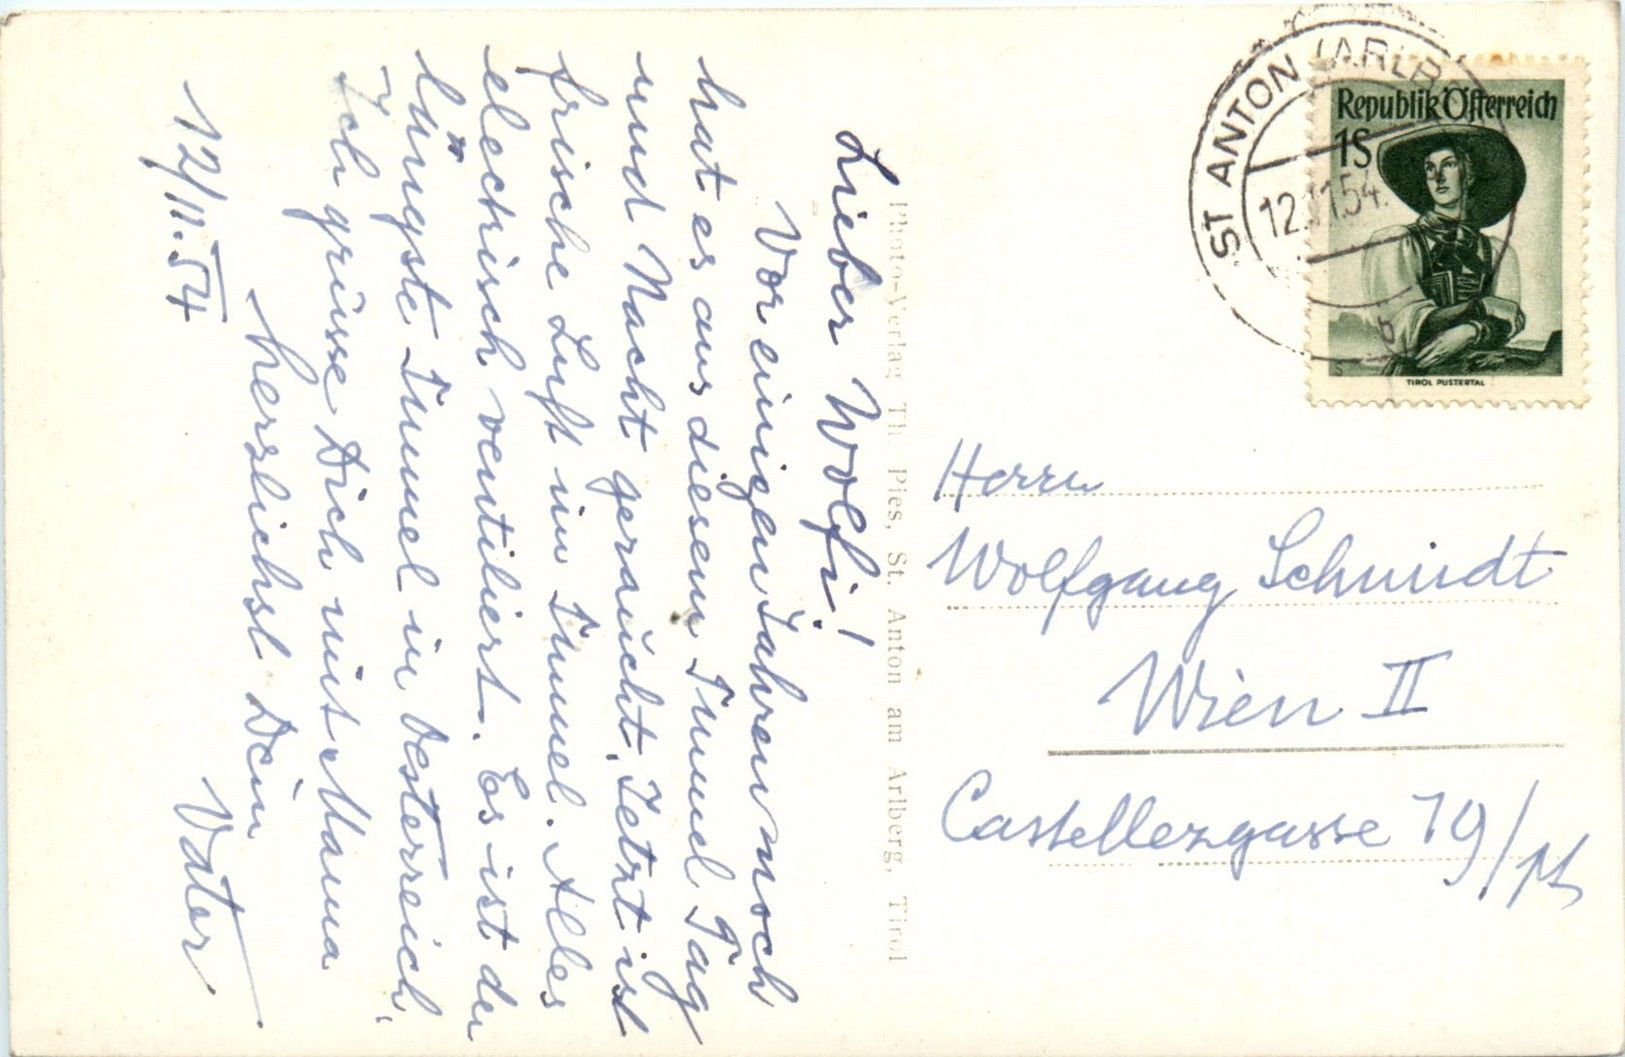 Lieber Wolfi!
Vor einigen Jahren noch
hat es aus diesem Tunnel Tag
und Nacht geraucht. Jetzt ist
frische Luft im Tunnel. Alles
elecktrisch ventiliert. Es ist der
längste Tunnel in Oesterreich.
Ich grüsse Dich mit Mama
herzlichst Dein
Vater
12/11.54
Photo-Verlag Th. Pies, St. Anton am Arlberg, Tirol
ST ANTON (ARLB
12.11.54
b
Republik Österreich
1S
TIROL PUSTERTAL
Herrn
Wolfgang Schmidt
Wien II
Castellezgasse 19/pt